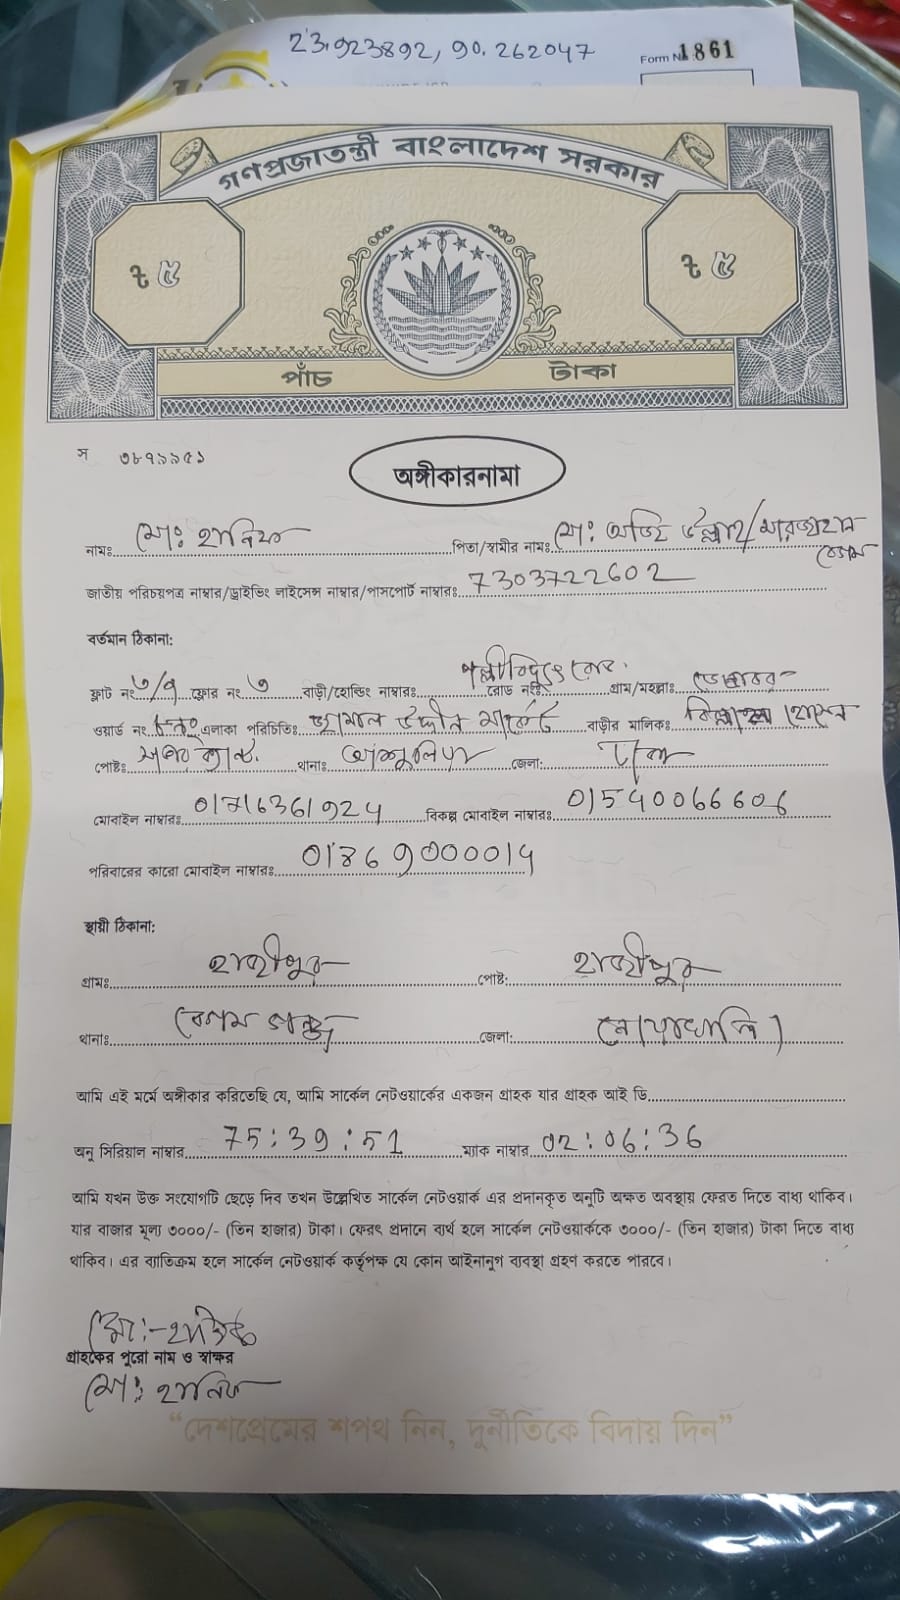 23.923892, 90.262047
Form No 1861
গণপ্রজাতন্ত্রী বাংলাদেশ সরকার
৳ ৫ ৳ ৫
পাঁচ টাকা
স ৩৮৭৯৯৫১
অঙ্গীকারনামা
নামঃ মোঃ হানিফ পিতা/স্বামীর নামঃ মোঃ অজি উল্লাহ/
বেগম
জাতীয় পরিচয়পত্র নাম্বার/ড্রাইভিং লাইসেন্স নাম্বার/পাসপোর্ট নাম্বারঃ 7303722602
বর্তমান ঠিকানা:
পল্লীবিদ্যুৎ রোড
ফ্লাট নং ৩/এ ফ্লোর নং ৩ বাড়ী/হোল্ডিং নাম্বারঃ রোড নংঃ গ্রাম/মহল্লাঃ
ওয়ার্ড নং এলাকা পরিচিতিঃ জামাল উদ্দীন মার্কেট বাড়ীর মালিকঃ হোসেন
পোষ্টঃ থানাঃ আশুলিয়া জেলা: ঢাকা
মোবাইল নাম্বারঃ 01716361924 বিকল্প মোবাইল নাম্বারঃ 01540066606
পরিবারের কারো মোবাইল নাম্বারঃ 01869000014
স্থায়ী ঠিকানা:
গ্রামঃ হাজীপুর পোষ্ট: হাজীপুর
থানাঃ বেগম গঞ্জ জেলা: নোয়াখালি
আমি এই মর্মে অঙ্গীকার করিতেছি যে, আমি সার্কেল নেটওয়ার্কের একজন গ্রাহক যার গ্রাহক আই ডি
অনু সিরিয়াল নাম্বার 75:39:51 ম্যাক নাম্বার 02:06:36
আমি যখন উক্ত সংযোগটি ছেড়ে দিব তখন উল্লেখিত সার্কেল নেটওয়ার্ক এর প্রদানকৃত অনুটি অক্ষত অবস্থায় ফেরত দিতে বাধ্য থাকিব।
যার বাজার মূল্য ৩০০০/- (তিন হাজার) টাকা। ফেরৎ প্রদানে ব্যর্থ হলে সার্কেল নেটওয়ার্ককে ৩০০০/- (তিন হাজার) টাকা দিতে বাধ্য
থাকিব। এর ব্যতিক্রম হলে সার্কেল নেটওয়ার্ক কর্তৃপক্ষ যে কোন আইনানুগ ব্যবস্থা গ্রহণ করতে পারবে।
মোঃ-হানিফ
গ্রাহকের পুরো নাম ও স্বাক্ষর
মোঃ হানিফ
“দেশপ্রেমের শপথ নিন, দুর্নীতিকে বিদায় দিন”